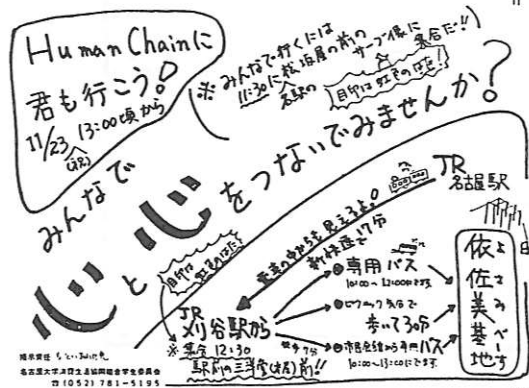 Human Chainに
君も行こう!
11/23 13:00頃から
(祝)
※みんなで行くには
11:30に松坂屋の前の
名駅の
サーブ像に
集合だ!!
目印は虹色のはた!
みんなで
心と心をつないでみませんか?
目印は
虹色のはた!
電車の中からも見えるよ。
新快速で17分
JR
名古屋駅
JR
刈谷駅から
※集合 12:30
駅前の三洋堂(本屋)前!!
●専用バス
10:00〜12:00まででます
●ピクニック気分で
歩いて30分
徒歩7分
●市民会館から専用バス
10:00〜13:00にでます
依佐美基地
よさみべーす
掲示責任
名古屋大学消費生活協同組合学生委員会
☎(052)781-5195